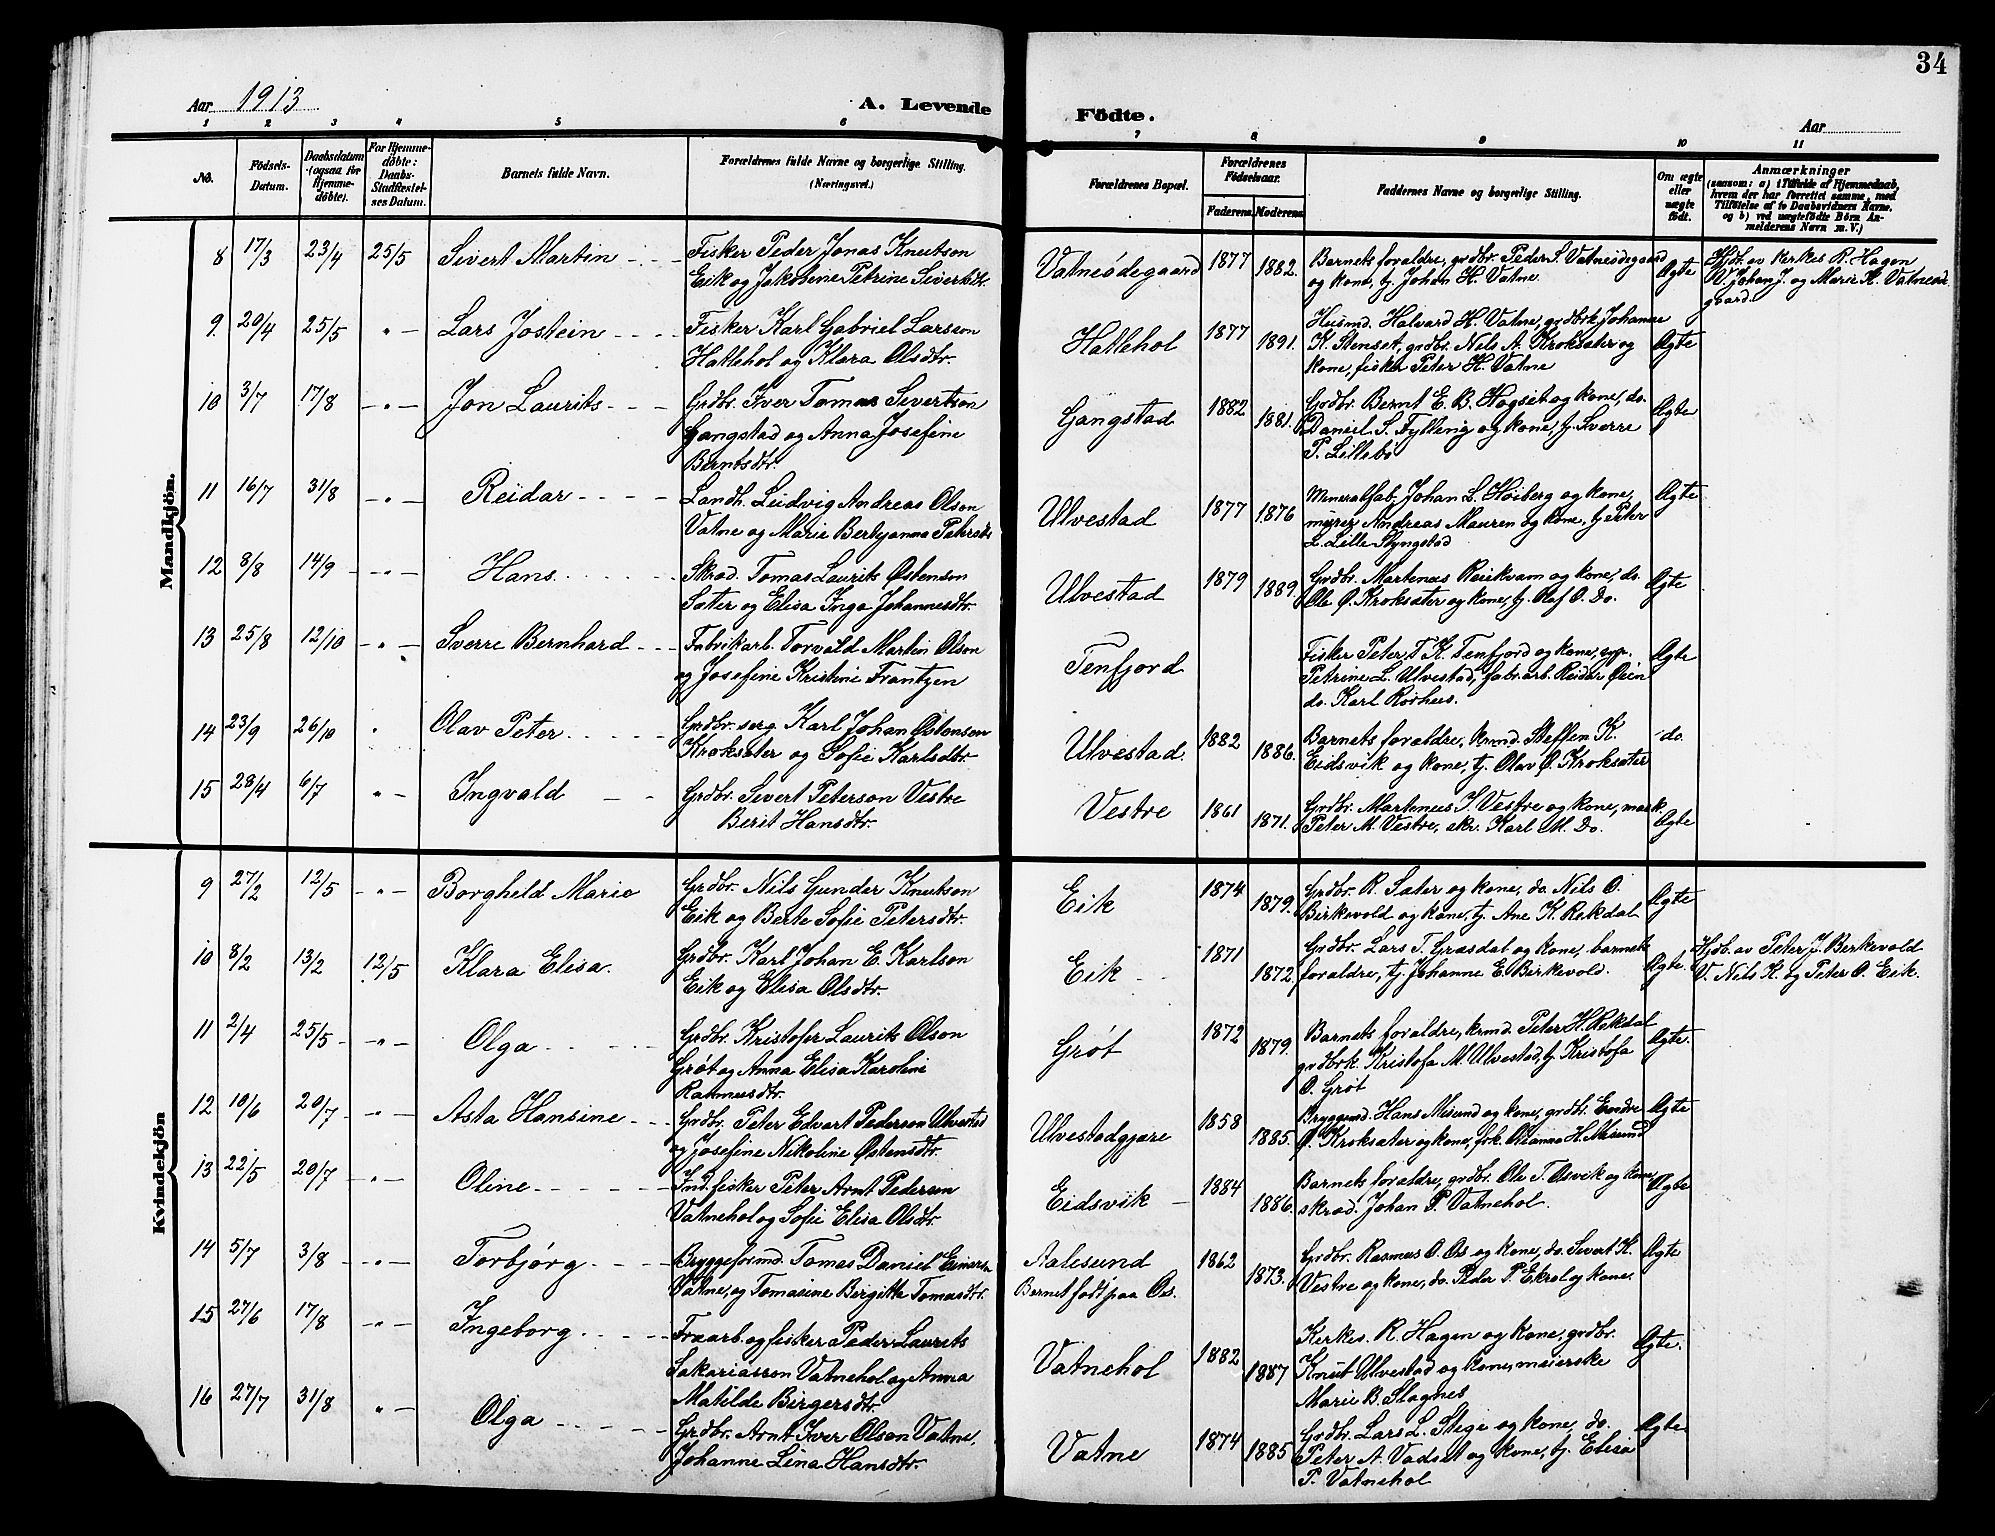 34
Aar 1913
A. Levende
Födte.
Aar
1 2 3 4 5 6 7 8 9 10 11
No.
Födsels-
Datum.
Daabsdatum
(ogsaa for
Hjemme-
döbte).
For Hjemme-
döbte:
Daabs-
Stadfæstel-
ses Datum.
Barnets fulde Navn.
Forældrenes fulde Navne og borgerlige Stilling.
(Næringsvei.)
Forældrenes Bopæl.
Forældrenes
Födselsaar.
Faderens. Moderens.
Faddernes Navne og borgerlige Stilling.
Om ægte
eller
uægte
födt.
Anmærkninger
(saasom: a) i Tilfælde af Hjemmedaab,
hvem der har forrettet samme, med
Tilföielse af to Daabsvidners Navne,
og b) ved uægtefödte Börn An-
melderens Navn m. V.)
Mandkjön.
8 17/3 23/4 25/5 Sivert Martin - - - Fisker Peder Jonas Knutson
Eik og Jakobine Petrine Sivertsdtr.
Vatneødegaard 1877 1882. Barnets foraldre, grdbr. Peder S. Vatneødegaard
og kone, tj. Johan H. Vatne. Ægte
Hjdb. av kirkes R. Hagen
V. Johan J. og Marie K. Vatneød
gaard.
9. 20/4 25/5 " - Lars Jostein - - - Fisker Karl Gabriel Larsson
Hatlehol og Klara Olsdtr.
Hatlehol 1877 1891. Husmd. Halvard H. Vatne, grdbrk. Johanne
K. Stenset, grdbr. Nils A. Kroksater og
kone, fisker Peter H. Vatne Ægte
10 3/7 17/8 - " - Jon Laurits - - - Grdbr. Iver Tomas Sivertson
Gangstad og Anna Josefine
Berntsdtr.
Gangstad 1882 1881. Grdbr. Bernt E. B. Hogset og kone, do.
Daniel S. Fylling og kone, tj. Sverre
P. Lillebo Ægte
11 16/7 31/8 - " - Reidar - - - - Landh. Ludvig Andreas Olson
Vatne og Marie Berhjanna
Ulvestad 1877 1876 Mineralfab. Johan L. Høiberg og kone,
murer Andreas Mauren og kone, tj. Peter
L. Lille Slyngstad Ægte
12 8/8 14/9 - " - Hans - - - - Skrad. Tomas Laurits Østenson
Sæter og Elisa Inga Johannesdtr.
Ulvestad 1879 1889. Grdbr. Martinus Reiekvam og kone, do.
Ole Ø. Kroksater og kone, tj. Olaf O. Do. Ægte
13 25/8 12/10 - " - Sverre Bernhard - - - Fabrikarb. Torvald Martin Olson
og Josefine Kristine Frantzen
Tenfjord
Fisker Peter T. K. Tenfjord og kone, syp.
Petrine L. Ulvestad, fabr. arb. Reidar Øien
do. Karl Rørhus. Ægte
14 23/9 26/10 " Olav Peter - - - - Grdbr. serg. Karl Johan Østenson
Kroksater og Sofie Karlsdtr.
Ulvestad. 1882 1886. Barnets foraldre, krmd. Steffen K.
Eidsvik og kone, tj. Olav Ø. Kroksater do.
15 28/4 6/7 " - Ingvald - - Grdbr. Sivert Peterson Vestre
Berit Hansdtr.
Vestre 1861 1871. Grdbr. Martinus I. Vestre og kone, mask.
Peter M. Vestre, skr. Karl M. Do. Ægte
Kvindekjön
9 27/2 12/5 - " - Borghild Marie Grdbr. Nils Gunder Knutson
Eik og Berte Sofie Petersdtr.
Eik 1874 1879. Grdbr. R. Sæter og kone, do. Nils O.
Birkevold og kone, tj. Ane K. Rekdal Ægte
10 8/2 13/2 12/5 Klara Elisa. Grdbr. Karl Johan E. Karlson
Eik og Elisa Olsdtr.
Eik - 1871 1872. Grdbr. Lars T. Græsdal og kone, barnets
foraldre, tj. Johanne E. Birkevold. Ægte.
Hjdb. av Peter J. Berkevold
V. Nils K. og Peter O. Eik.
11 2/4 25/5 - " - Olga - - - - Grdbr. Kristofer Laurits Olson
Grøt og Anna Elisa Karoline
Rasmusdtr.
Grøt 1872 1879. Barnets foraldre, krmd. Peter H. Rekdal
grdbrk. Kristofa M. Ulvestad, tj. Kristofa
O. Grøt Ægte.
12 10/6 20/7 - " - Asta Hansine - - - Grdbr. Peter Edvart Pederson Ulvestad
og Josefine Nikoline Østensdtr.
Ulvestadgjære 1858 1885. Bryggemd. Hans Misund og kone, grdbr. Endre
Ø. Kroksater og kone, frk. Oleanna H. Misund Ægte
13 22/5 20/7 - " - Oline - - - - Ind. fisker Peter Arnt Pederson
Vatnehol og Sofie Elisa Olsdtr.
Eidsvik - 1884 1886. Barnets foraldre, grdbr. Ole T. Osvik og kone
skrad. Johan P. Vatnehol. Ægte
14 5/7 3/8 - " - Torbjørg - - - - Bryggeformd. Tomas Daniel Einarsn
Vatne, og Tomasine Birgitte Tomasdtr.
Aalesund
Barnet født paa Os. 1862 1873. Grdbr. Rasmus O. Os og kone, do. Sivert K.
Vestre og kone, do. Peder P. Ekrol og kone. Ægte
15 27/6 17/8 - " - Ingeborg - - - - Traarb. og fisker Peder Laurits
Sakariasson Vatnehol og Anna
Matilde Birgersdtr.
Vatnehol 1882 1887 Kirkes. R. Hagen og kone, grdbr.
Knut Ulvestad og kone, meierske
Marie B. Slagnes Ægte.
16 27/7 31/8 " - Olga - - - - Grdbr. Arnt Iver Olson Vatne,
Johanne Lina Hansdtr.
Vatne 1874 1885 Grdbr. Lars L. Stige og kone, do.
Peter A. Vadset og kone, tj. Elisa
P. Vatnehol Ægte